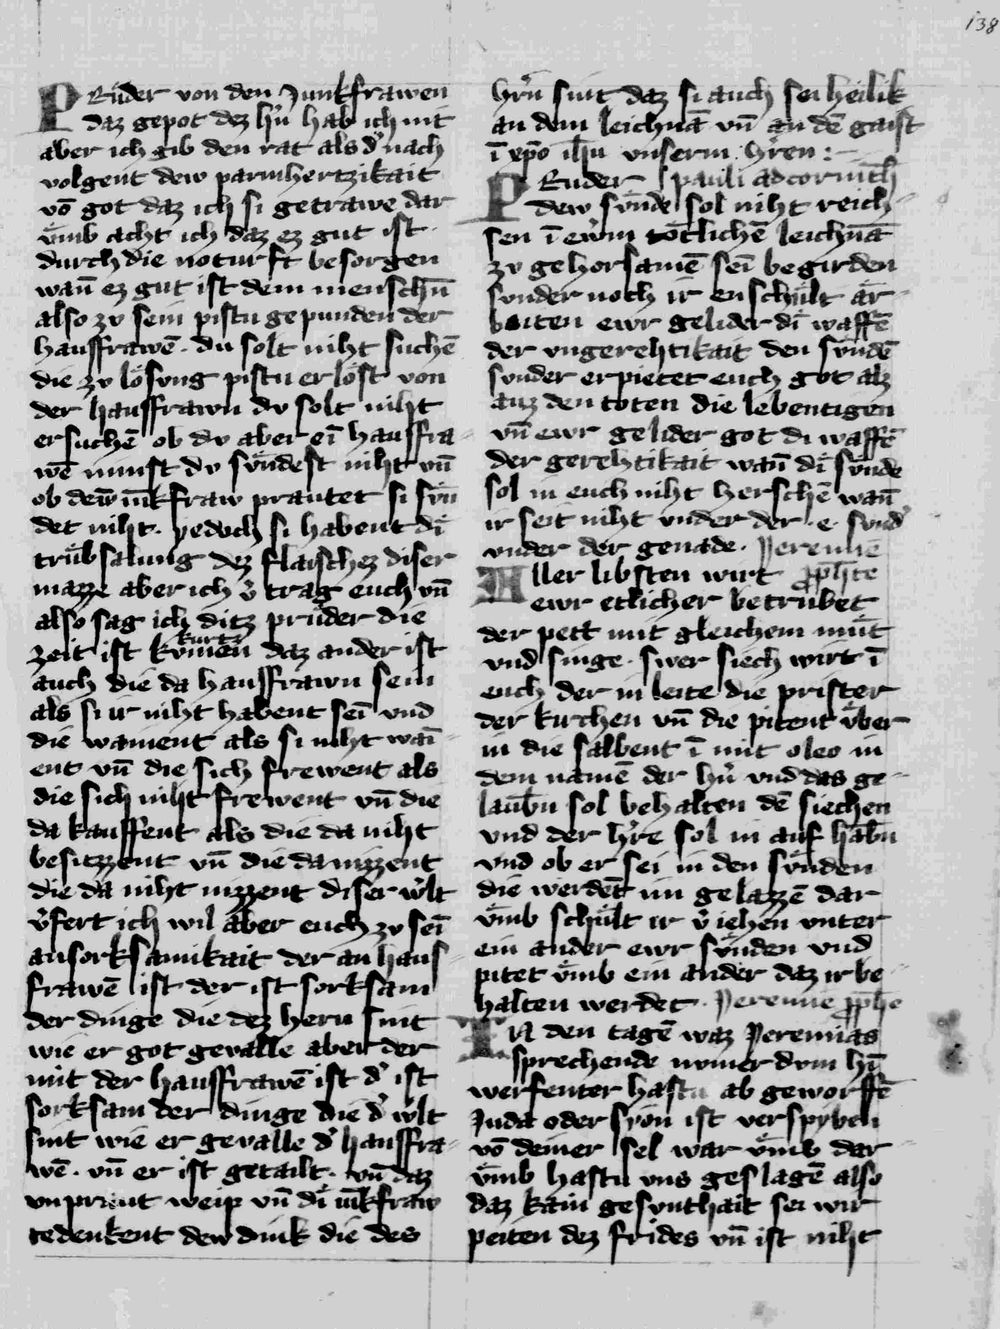 138
PRuder von den Junkfrawen
daz gepot dez hr̃n hab ich nit
aber ich gib den rat als d' nach
volgent dew parmhertzikait
võ got daz ich si getrawe dar
vmb acht ich daz ez gut ist
durch die noturft besorgen
wañ ez gut ist dem menschñ
also zv sein pistu gepunden der
hauffrawẽ. du solt niht suchẽ
die zv lösung pistu erlöst von
der hauffrawn dv solt niht
ersuchẽ ob dv aber eĩ hauffra
wẽ nimst dv sündest niht vñ
ob dew iũkfraw prautet si sün
det niht. yedoch si habent di
trübsalung dez flaischez diser
mazze aber ich v' trag euch vñ
also sag ich ditz prüder die
zeit ist kurtz daz ander ist
auch die da hauffrawn sein
als si ir niht habent seĩ vnd
die wainent als si niht waĩ
ent vñ die sich frewent als
die sich niht frewent vñ die
da kauffent als die da niht
besitzzent vñ die da nizzent
die da niht nizzent diser w'lt
v'fert ich wil aber euch zv seĩ
ansorksamikait der an haus
frawẽ ist der ist sorksam
der dinge die dez hern sint
wie er got gevalle aber der
mit der hauffrawẽ ist d' ist
sorksam der dinge die d' w'lt
sint wie er gevalle d' hauffra
wẽ. vñ er ist getailt. vñ daz
vnpraut weip vñ di iũkfraw
gedenkent dew dink die des
hr̃n sint daz si auch sei heilik
an dem leichnã vñ an dẽ gaist
ĩ xp̃o ih̃u vnserm hr̃en :
PRuder pauli ad corinth
dew sünde sol niht reich
sen ĩ ewrm tötlichẽ leichnã
zv gehorsamẽ seĩ begirden
sunder noch ir enschült ar
baiten ewr gelider di waffẽ
der vngerehtikait den sündẽ
sunder erpietet euch got alz
auz den toten die lebentigen
vñ ewr gelider got di waffẽ
der gerehtikait wañ di sünde
sol in euch niht herschẽ wañ
ir seit niht vnder der .e. sund'
vnder der genade. Jeremie
Aller libsten wirt
ewr etlicher betrübet
der pett mit gleichem müt
vnd singe. swer siech wirt ĩ
euch der in leite die prister
der kirchen vñ die pitent über
in die salbent ĩ mit oleo in
dem namẽ der hr̃ vnd das ge
laubñ sol behalten dẽ siechen
vnd der h'rre sol in auf habñ
vnd ob er sei in den sünden
die werdent im gelazzẽ dar
vmb schült ir v'iehen vnter
ein ander ewr sünden vnd
pitet vmb ein ander daz ir be
halten werdet. Jeremie
IN den tagẽ waz Jeremias
sprechende nymer dom hr̃
werfenter hastu ab geworffẽ
Juda oder syon ist verspyben
võ deiner sel war vmb dar
vmb hastu uns geslagẽ also
daz kain gesunthait sei wir
peiten dez frides vñ ist niht